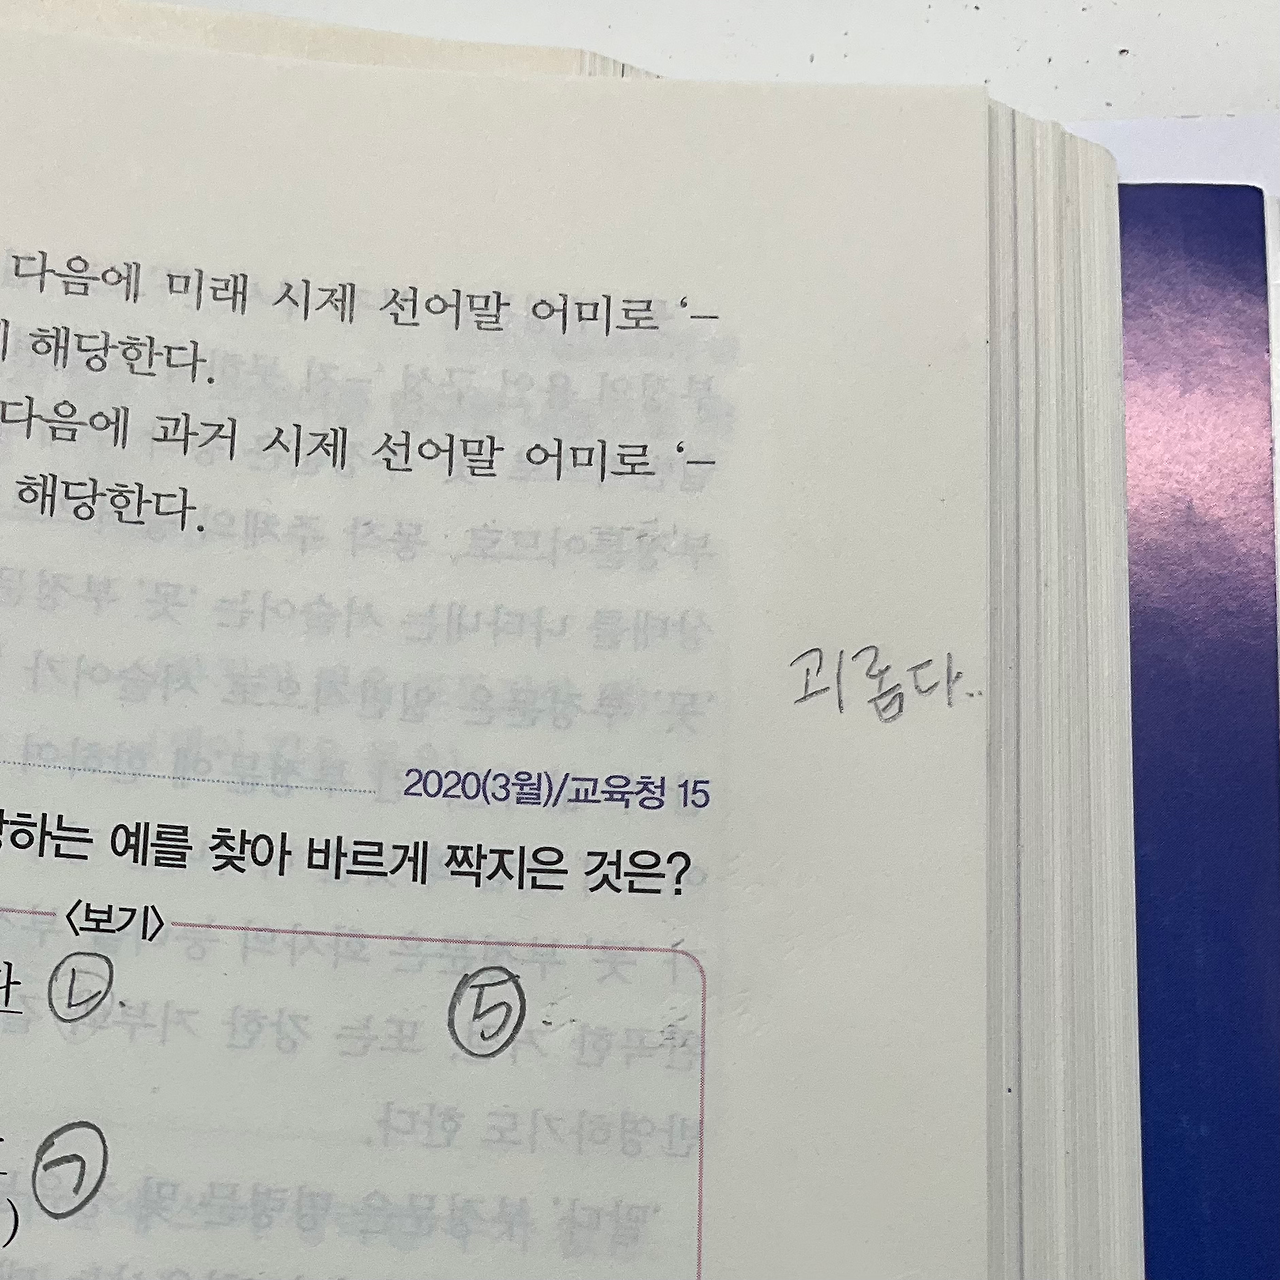 다음에 미래 시제 선어말 어미로 ‘–
해당한다.
다음에 과거 시제 선어말 어미로 ‘–
해당한다.
괴롭다..
2020(3월)/교육청 15
하는 예를 찾아 바르게 짝지은 것은?
〈보기〉
ㄴ.
5
ㄱ
)